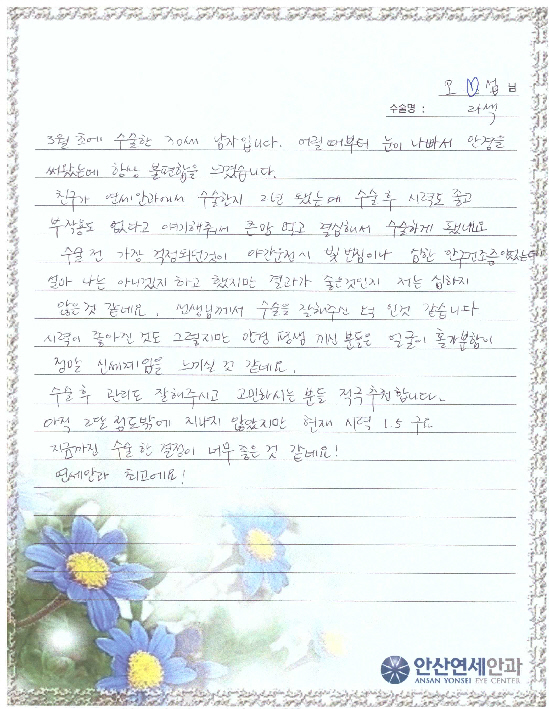 오 섭 님
수술명 : 라섹
3월 초에 수술한 30세 남자입니다. 어릴때부터 눈이 나빠서 안경을
써왔는데 항상 불편함을 느꼈습니다.
친구가 연세안과에서 수술한지 2년 됐는데 수술 후 시력도 좋고
부작용도 없다고 얘기해줘서 큰맘 먹고 결심해서 수술하게 됐네요
수술 전 가장 걱정되던것이 야간운전시 빛 번짐이나 심한 안구건조증이었는데
설마 나는 아니겠지 하고 했지만 결과가 좋은것인지 저는 심하지
않은것 같네요. 선생님께서 수술을 잘해주신 덕 인것 같습니다
시력이 좋아진 것도 그렇지만 안경 평생 끼신 분들은 얼굴이 홀가분함이
정말 신세계임을 느끼실 것 같네요.
수술 후 관리도 잘해주시고 고민하시는 분들 적극 추천합니다.
아직 2달 정도밖에 지나지 않았지만 현재 시력 1.5 구요
지금까진 수술 한 결정이 너무 좋은 것 같네요!
연세안과 최고에요!
안산연세안과
ANSAN YONSEI EYE CENTER